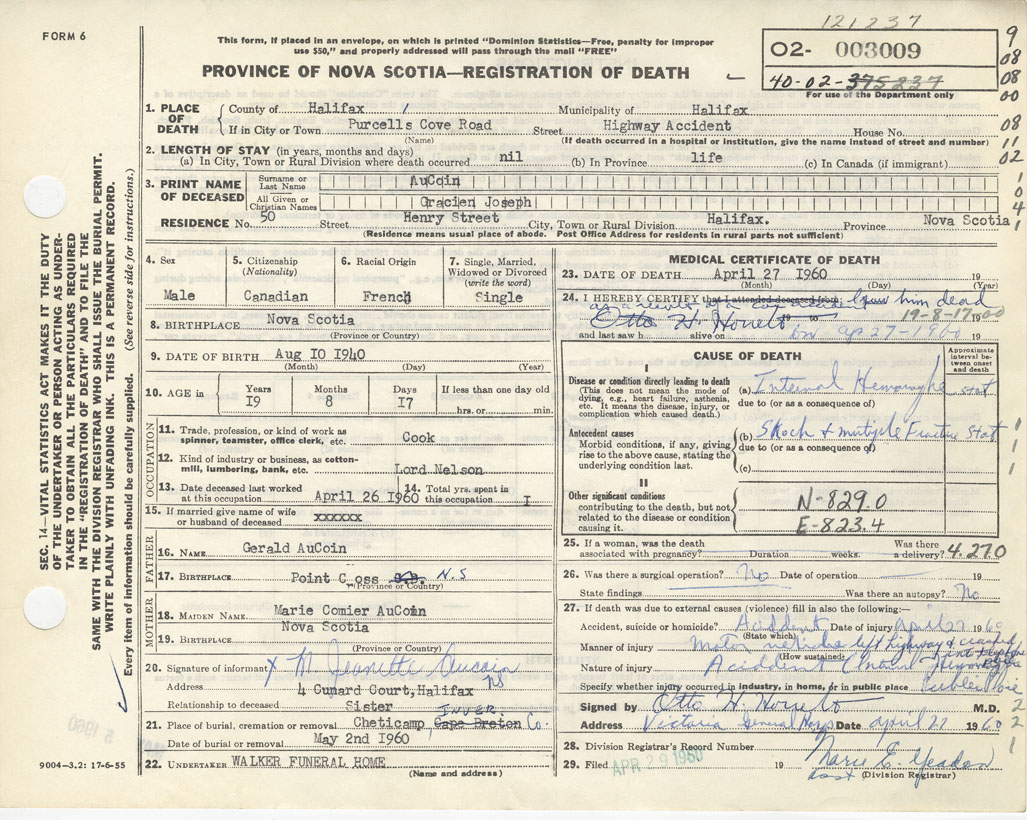 121237
FORM 6
This form, if placed in an envelope, on which is printed "Dominion Statistics—Free, penalty for improper
use $50," and properly addressed will pass through the mail "FREE"
PROVINCE OF NOVA SCOTIA—REGISTRATION OF DEATH
02- 003009
40-02-375237
For use of the Department only
9
08
08
00
08
11
02
1
0
4
1
1. PLACE OF DEATH
County of Halifax
Municipality of Halifax
If in City or Town Purcells Cove Road Street Highway Accident House No.
(Name) (If death occurred in a hospital or institution, give the name instead of street and number)
2. LENGTH OF STAY (in years, months and days)
(a) In City, Town or Rural Division where death occurred nil (b) In Province life (c) In Canada (if immigrant)
3. PRINT NAME OF DECEASED
Surname or Last Name AuCoin
All Given or Christian Names Gracien Joseph
RESIDENCE No. 50 Street Henry Street City, Town or Rural Division Halifax. Province Nova Scotia
(Residence means usual place of abode. Post Office Address for residents in rural parts not sufficient)
4. Sex
Male
5. Citizenship (Nationality)
Canadian
6. Racial Origin
French
7. Single, Married, Widowed or Divorced (write the word)
Single
8. BIRTHPLACE Nova Scotia
(Province or Country)
9. DATE OF BIRTH Aug 10 1940
(Month) (Day) (Year)
10. AGE in Years 19 Months 8 Days 17 If less than one day old
hrs. or min.
OCCUPATION
11. Trade, profession, or kind of work as spinner, teamster, office clerk, etc. Cook
12. Kind of industry or business, as cotton-mill, lumbering, bank, etc. Lord Nelson
13. Date deceased last worked at this occupation April 26 1960
14. Total yrs. spent in this occupation 1
15. If married give name of wife or husband of deceased xxxxxx
FATHER
16. NAME Gerald AuCoin
17. BIRTHPLACE Point C oss N.S
(Province or Country)
MOTHER
18. MAIDEN NAME Marie Comier AuCoin
19. BIRTHPLACE Nova Scotia
(Province or Country)
20. Signature of informant X M Jeanette Aucoin
Address 4 Cunard Court, Halifax NS
Relationship to deceased Sister
21. Place of burial, cremation or removal Cheticamp, Cape Breton INVER. Co.
Date of burial or removal May 2nd 1960
22. UNDERTAKER WALKER FUNERAL HOME
(Name and address)
MEDICAL CERTIFICATE OF DEATH
23. DATE OF DEATH April 27 1960 19
(Month) (Day) (Year)
24. I HEREBY CERTIFY that I attended deceased from I saw him dead
as a result of a car accident 19 to 19-8-17-00
Otto H. Horrelt
and last saw h alive on on Ap 27-1960 19
CAUSE OF DEATH
Approximate interval between onset and death
I
Disease or condition directly leading to death
(This does not mean the mode of dying, e.g., heart failure, asthenia, etc. It means the disease, injury, or complication which caused death.)
(a) Internal Hemorraghe Stat
due to (or as a consequence of)
Antecedent causes
Morbid conditions, if any, giving rise to the above cause, stating the underlying condition last.
(b) Shock & mutiple Fracture Stat
due to (or as a consequence of)
(c)
II
Other significant conditions
contributing to the death, but not related to the disease or condition causing it.
N-829.0
E-823.4
25. If a woman, was the death associated with pregnancy? Duration weeks. Was there a delivery? 4.270
26. Was there a surgical operation? No Date of operation 19
State findings Was there an autopsy? No
27. If death was due to external causes (violence) fill in also the following:—
Accident, suicide or homicide? Accident Date of injury April 27 1960
(State which)
Manner of injury Motor vehicle left highway & crashed
(How sustained)
Nature of injury Accident
Specify whether injury occurred in industry, in home, or in public place Public Place
Signed by Otto H. Horrelt M.D.
Address Victoria General Hosp Date April 27 1960
28. Division Registrar's Record Number
29. Filed APR 29 1960 19 Marie E. Yeadon
Asst (Division Registrar)
1
1
1
2
2
1
SEC. 14—VITAL STATISTICS ACT MAKES IT THE DUTY
OF THE UNDERTAKER OR PERSON ACTING AS UNDER-
TAKER TO OBTAIN ALL THE PARTICULARS REQUIRED
IN THE "REGISTRATION OF DEATH" AND TO FILE THE
SAME WITH THE DIVISION REGISTRAR WHO SHALL ISSUE THE BURIAL PERMIT.
WRITE PLAINLY WITH UNFADING INK. THIS IS A PERMANENT RECORD.
Every item of information should be carefully supplied. (See reverse side for instructions.)
9004-3.2: 17-6-55